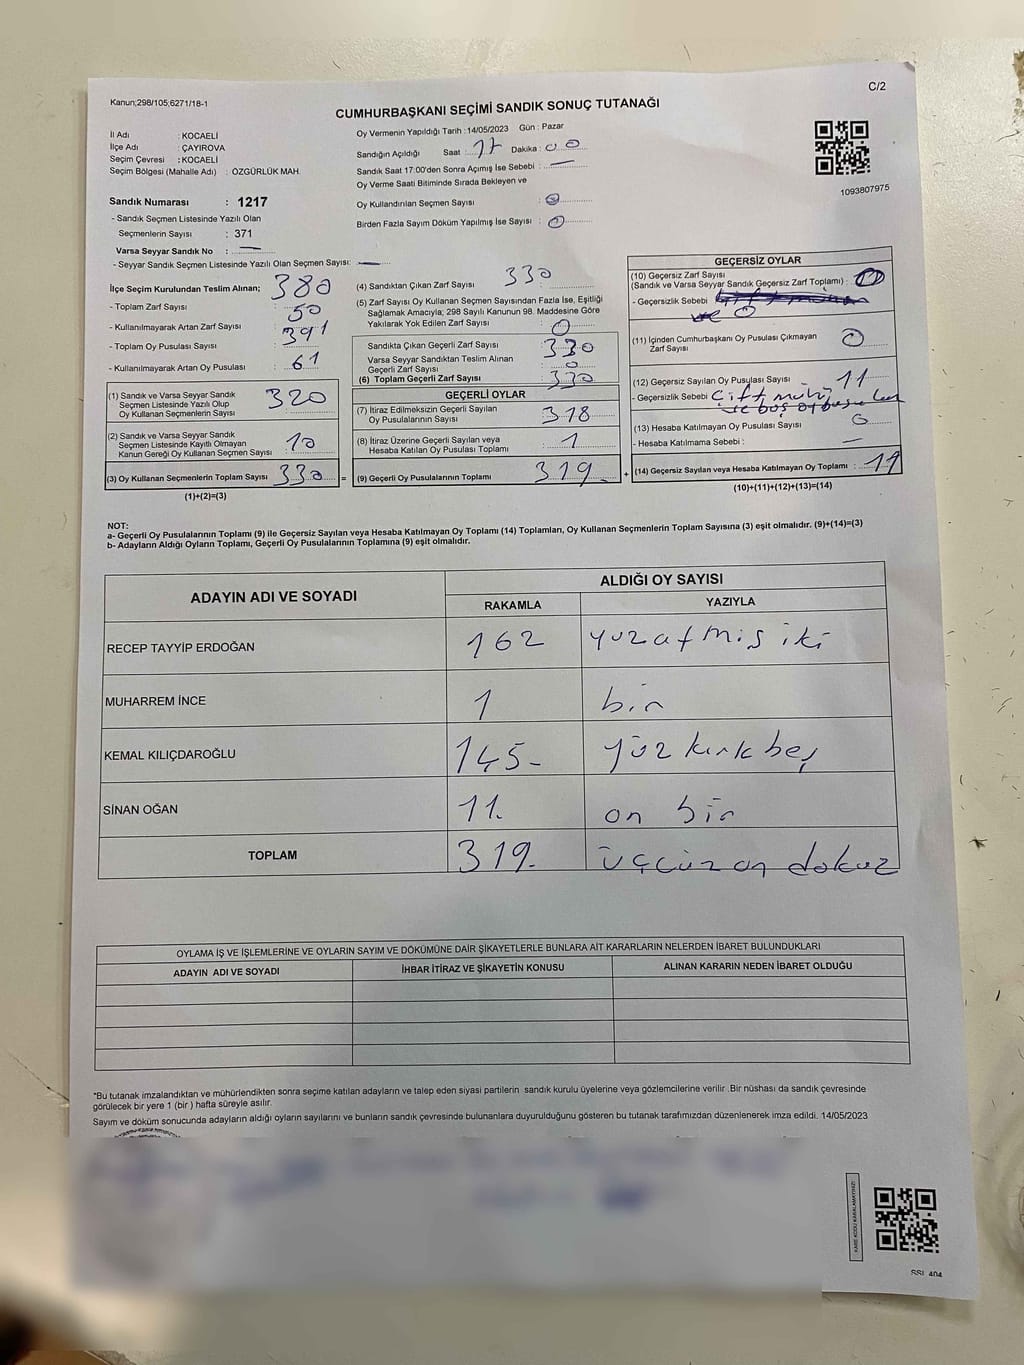 Kanun;298/105;6271/18-1
C/2
CUMHURBAŞKANI SEÇİMİ SANDIK SONUÇ TUTANAĞI
İl Adı : KOCAELİ
İlçe Adı : ÇAYIROVA
Seçim Çevresi : KOCAELİ
Seçim Bölgesi (Mahalle Adı) : ÖZGÜRLÜK MAH.
Sandık Numarası : 1217
- Sandık Seçmen Listesinde Yazılı Olan
Seçmenlerin Sayısı : 371
Varsa Seyyar Sandık No : —
- Seyyar Sandık Seçmen Listesinde Yazılı Olan Seçmen Sayısı: —
Oy Vermenin Yapıldığı Tarih :14/05/2023 Gün : Pazar
Sandığın Açıldığı Saat : 17 Dakika : 00
Sandık Saat 17:00'den Sonra Açımış İse Sebebi : —
Oy Verme Saati Bitiminde Sırada Bekleyen ve
Oy Kullandırılan Seçmen Sayısı : 0
Birden Fazla Sayım Döküm Yapılmış İse Sayısı : 0
1093807975
İlçe Seçim Kurulundan Teslim Alınan; 380
- Toplam Zarf Sayısı
- Kullanılmayarak Artan Zarf Sayısı : 50
- Toplam Oy Pusulası Sayısı : 391
- Kullanılmayarak Artan Oy Pusulası : 61
(1) Sandık ve Varsa Seyyar Sandık
Seçmen Listesinde Yazılı Olup
Oy Kullanan Seçmenlerin Sayısı 320
(2) Sandık ve Varsa Seyyar Sandık
Seçmen Listesinde Kayıtlı Olmayan
Kanun Gereği Oy Kullanan Seçmen Sayısı : 10
(3) Oy Kullanan Seçmenlerin Toplam Sayısı : 330 =
(1)+(2)=(3)
(4) Sandıktan Çıkan Zarf Sayısı : 330
(5) Zarf Sayısı Oy Kullanan Seçmen Sayısından Fazla İse, Eşitliği
Sağlamak Amacıyla; 298 Sayılı Kanunun 98. Maddesine Göre
Yakılarak Yok Edilen Zarf Sayısı : 0
Sandıkta Çıkan Geçerli Zarf Sayısı : 330
Varsa Seyyar Sandıktan Teslim Alınan
Geçerli Zarf Sayısı : 0
(6) Toplam Geçerli Zarf Sayısı : 330
GEÇERLİ OYLAR
(7) İtiraz Edilmeksizin Geçerli Sayılan
Oy Pusulalarının Sayısı : 318
(8) İtiraz Üzerine Geçerli Sayılan veya
Hesaba Katılan Oy Pusulası Toplamı : 1
(9) Geçerli Oy Pusulalarının Toplamı : 319 +
GEÇERSİZ OYLAR
(10) Geçersiz Zarf Sayısı
(Sandık ve Varsa Seyyar Sandık Geçersiz Zarf Toplamı) : 0
- Geçersizlik Sebebi
(11) İçinden Cumhurbaşkanı Oy Pusulası Çıkmayan
Zarf Sayısı : 0
(12) Geçersiz Sayılan Oy Pusulası Sayısı : 11
- Geçersizlik Sebebi Çift mühür
ve boş oy pusulası
(13) Hesaba Katılmayan Oy Pusulası Sayısı : 0
- Hesaba Katılmama Sebebi : —
(14) Geçersiz Sayılan veya Hesaba Katılmayan Oy Toplamı : 11
(10)+(11)+(12)+(13)=(14)
NOT:
a- Geçerli Oy Pusulalarının Toplamı (9) ile Geçersiz Sayılan veya Hesaba Katılmayan Oy Toplamı (14) Toplamları, Oy Kullanan Seçmenlerin Toplam Sayısına (3) eşit olmalıdır. (9)+(14)=(3)
b- Adayların Aldığı Oyların Toplamı, Geçerli Oy Pusulalarının Toplamına (9) eşit olmalıdır.
ADAYIN ADI VE SOYADI ALDIĞI OY SAYISI
RAKAMLA YAZIYLA
RECEP TAYYİP ERDOĞAN 162 yüzatmış iki
MUHARREM İNCE 1 bir
KEMAL KILIÇDAROĞLU 145- yüz kırk beş
SİNAN OĞAN 11. on bir
TOPLAM 319- üççüz on dokuz
OYLAMA İŞ VE İŞLEMLERİNE VE OYLARIN SAYIM VE DÖKÜMÜNE DAİR ŞİKAYETLERLE BUNLARA AİT KARARLARIN NELERDEN İBARET BULUNDUKLARI
ADAYIN ADI VE SOYADI İHBAR İTİRAZ VE ŞİKAYETİN KONUSU ALINAN KARARIN NEDEN İBARET OLDUĞU
*Bu tutanak imzalandıktan ve mühürlendikten sonra seçime katılan adayların ve talep eden siyasi partilerin sandık kurulu üyelerine veya gözlemcilerine verilir .Bir nüshası da sandık çevresinde
görülecek bir yere 1 (bir ) hafta süreyle asılır.
Sayım ve döküm sonucunda adayların aldığı oyların sayılarını ve bunların sandık çevresinde bulunanlara duyurulduğunu gösteren bu tutanak tarafımızdan düzenlenerek imza edildi. 14/05/2023
KARE KODU KARALAMAYINIZ!